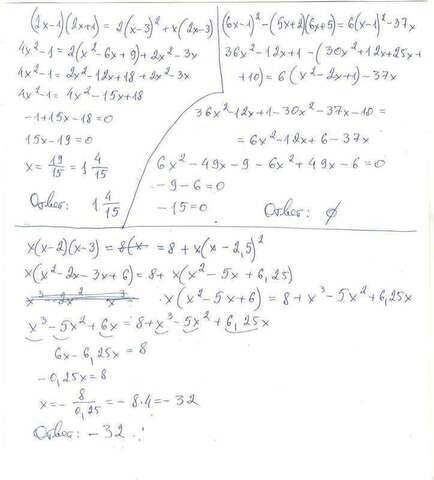 (2x-1)(2x+1) = 2(x-3)² + x(2x-3)
4x²-1 = 2(x²-6x+9) + 2x²-3x
4x²-1 = 2x²-12x+18+2x²-3x
4x²-1 = 4x²-15x+18
-1+15x-18=0
15x-19=0
x = 19/15 = 1 4/15
Ответ: 1 4/15
(6x-1)²-(5x+2)(6x+5)=6(x-1)²-37x
36x²-12x+1-(30x²+12x+25x+
+10)=6(x²-2x+1)-37x
36x²-12x+1-30x²-37x-10=
=6x²-12x+6-37x
6x²-49x-9-6x²+49x-6=0
-9-6=0
-15=0
Ответ: ∅
x(x-2)(x-3) = 8+x(x-2,5)²
x(x²-2x-3x+6)=8+x(x²-5x+6,25)
x(x²-5x+6)=8+x³-5x²+6,25x
x³-5x²+6x=8+x³-5x²+6,25x
6x-6,25x=8
-0,25x=8
x=-8/0,25=-8·4=-32
Ответ: -32